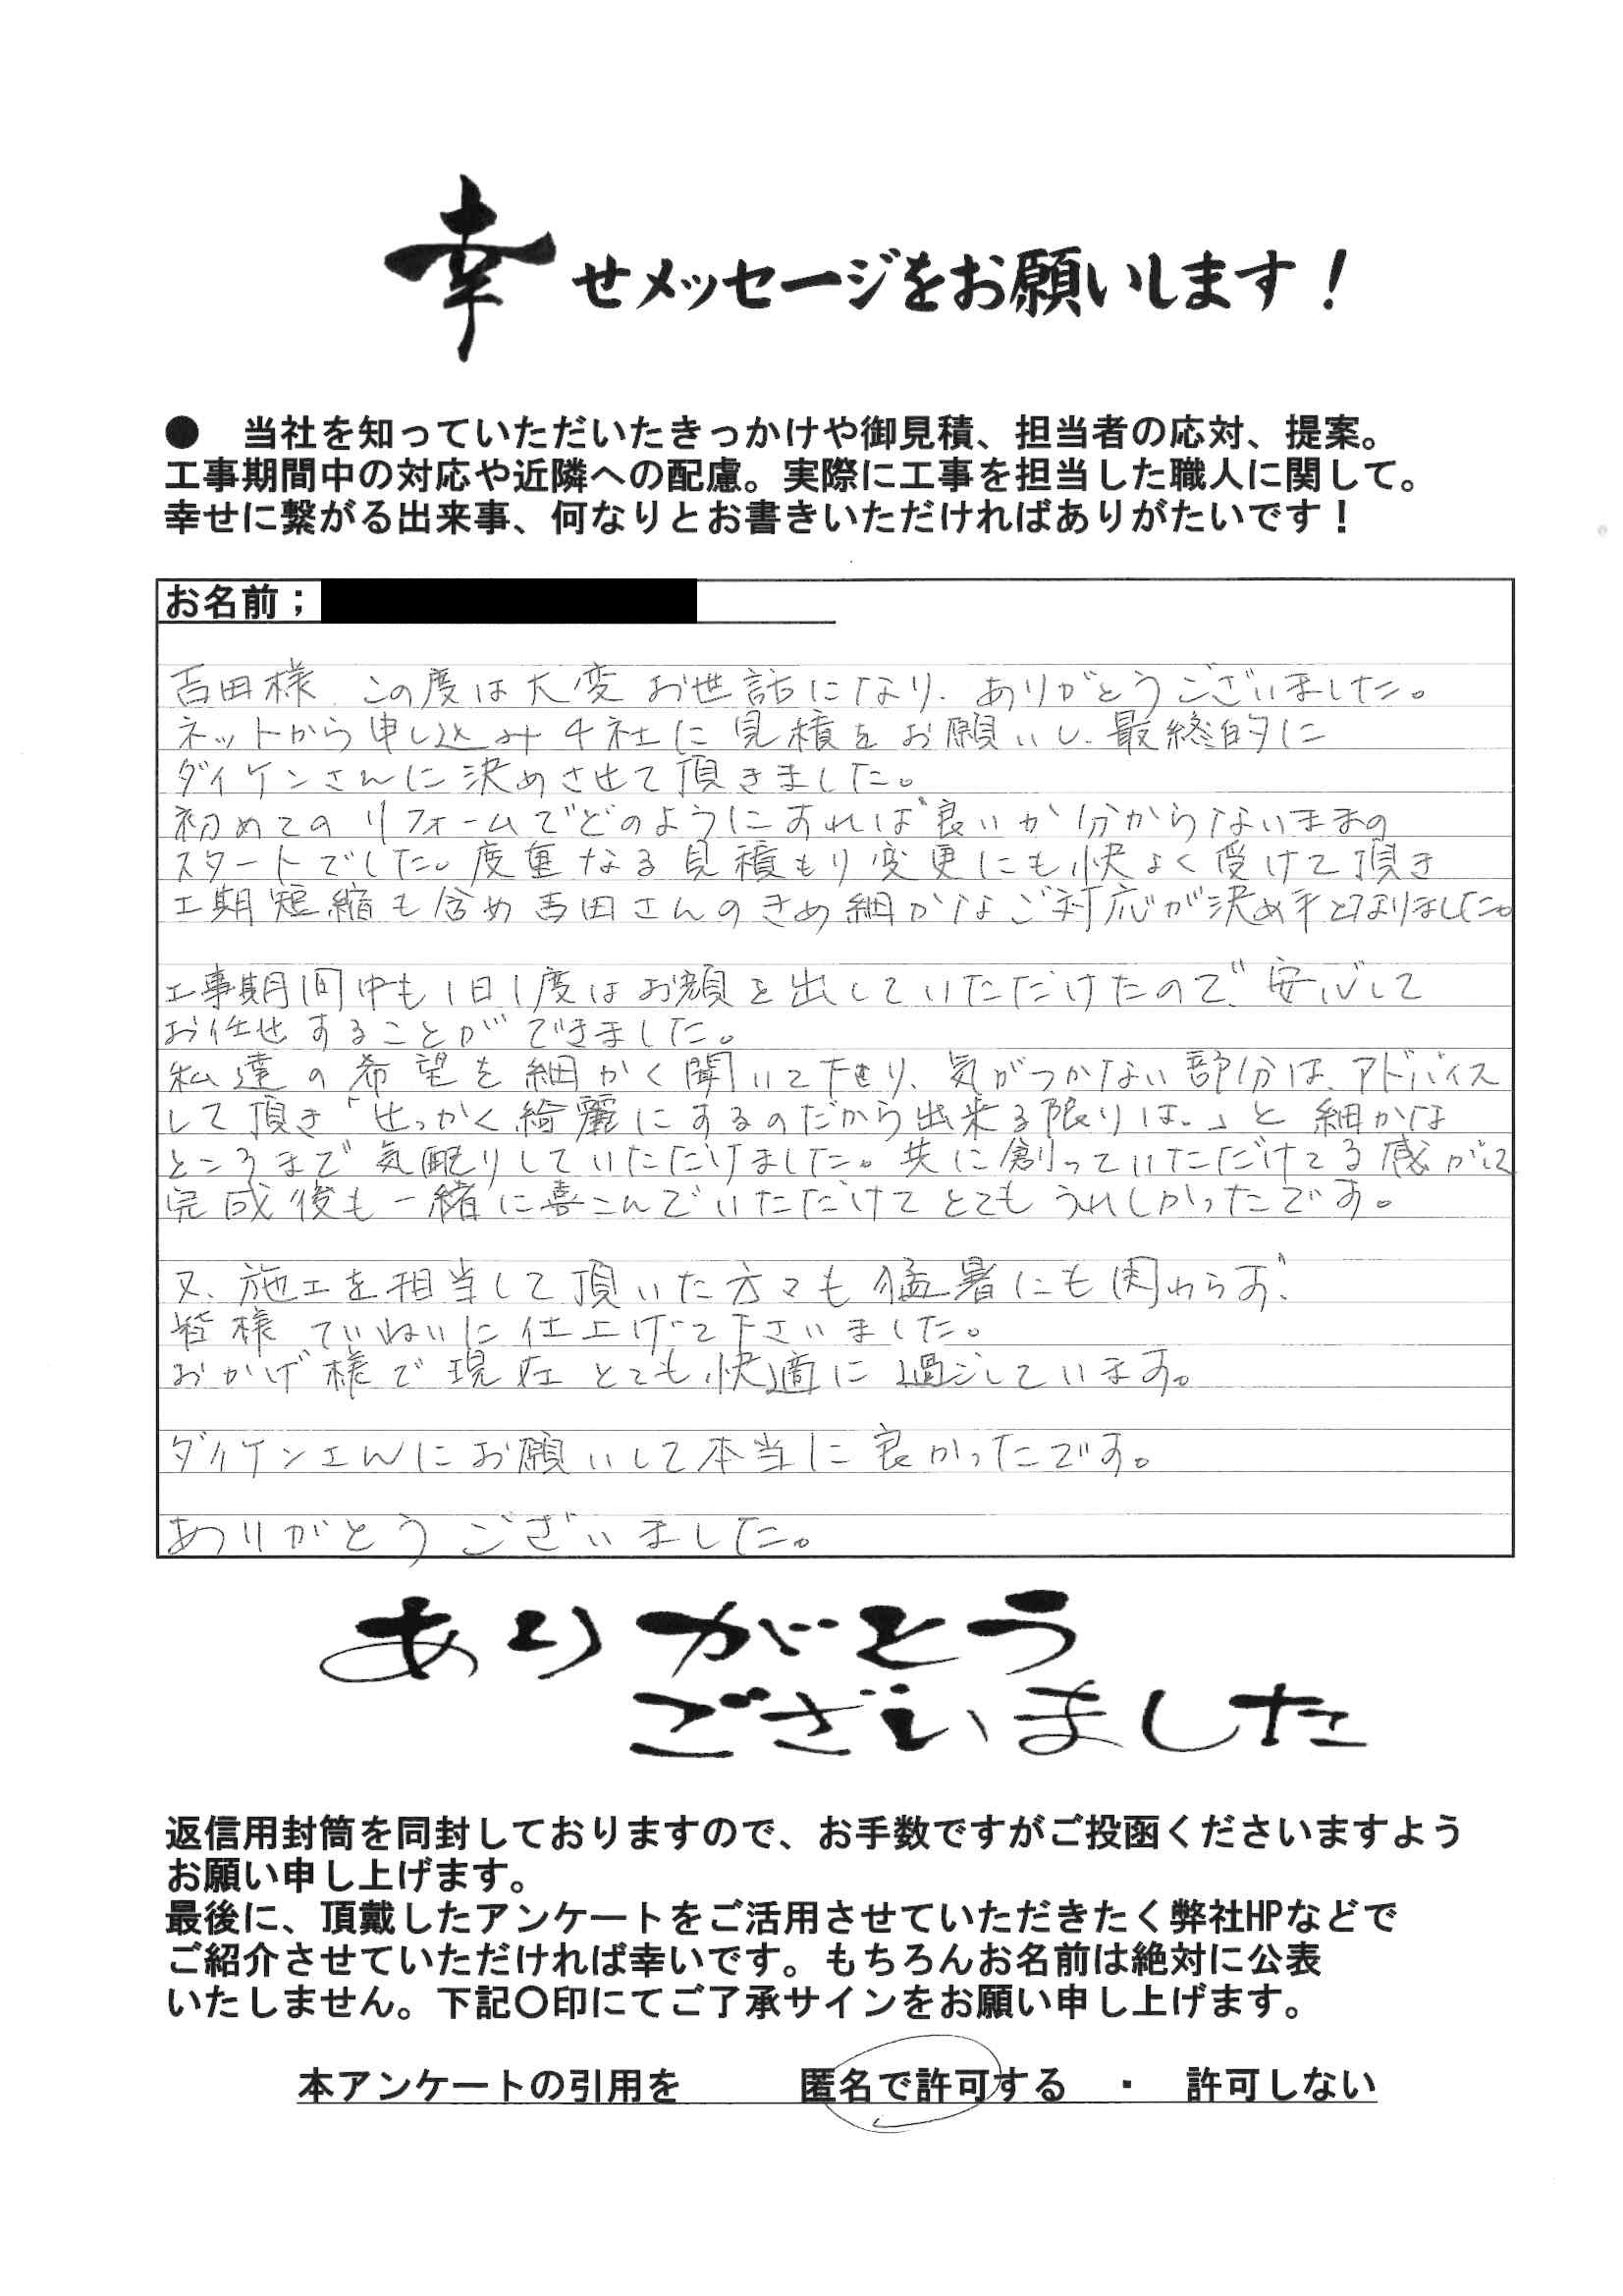 幸せメッセージをお願いします！
● 当社を知っていただいたきっかけや御見積、担当者の応対、提案。
工事期間中の対応や近隣への配慮。実際に工事を担当した職人に関して。
幸せに繋がる出来事、何なりとお書きいただければありがたいです！
お名前；
吉田様 この度は大変お世話になり、ありがとうございました。
ネットから申し込み4社に見積をお願いし、最終的に
ダイケンさんに決めさせて頂きました。
初めてのリフォームでどのようにすれば良いか分からないままの
スタートでした。度重なる見積もり変更にも快よく受けて頂き
工期短縮も含め吉田さんのきめ細かなご対応が決め手となりました。
工事期間中も1日1度はお顔を出していただけたので、安心して
お任せすることができました。
私達の希望を細かく聞いて下さり、気がつかない部分は、アドバイス
して頂き「せっかく綺麗にするのだから出来る限りは。」と細かな
ところまで気配りしていただけました。共に創っていただけてる感がして
完成後も一緒に喜こんでいただけてとてもうれしかったです。
又、施工を担当して頂いた方々も猛暑にも関わらず、
皆様ていねいに仕上げて下さいました。
おかげ様で現在とても快適に過ごしています。
ダイケンさんにお願いして本当に良かったです。
ありがとうございました。
ありがとう
ございました
返信用封筒を同封しておりますので、お手数ですがご投函くださいますよう
お願い申し上げます。
最後に、頂戴したアンケートをご活用させていただきたく弊社HPなどで
ご紹介させていただければ幸いです。もちろんお名前は絶対に公表
いたしません。下記〇印にてご了承サインをお願い申し上げます。
本アンケートの引用を 匿名で許可する ・ 許可しない